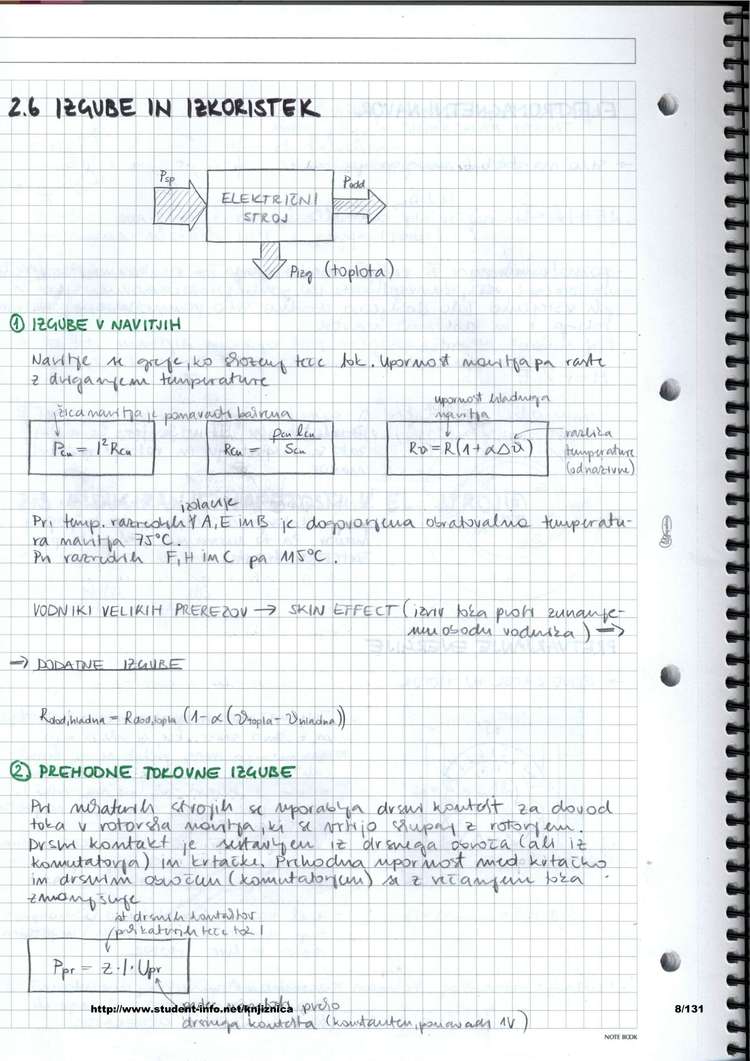 2.6 IZGUBE IN IZKORISTEK
Psp
ELEKTRIČNI
STROJ
Podd
Pizg (toplota)
① IZGUBE V NAVITJIH
Navitje se greje, ko skozenj teče tok. Upornost navitja pa raste
z dviganjem temperature
žica navitja je ponavadi bakrena
upornost hladnega
navitja
Pcu = I² Rcu
Rcu = ρcu lcu / Scu
Rϑ = R(1+αΔϑ)
razlika
temperature
(odnazivne)
izolacije
Pri temp. razredih A, E in B je dogovorjena obratovalna temperatu-
ra navitja 75°C.
Pri razredih F, H in C pa 115°C.
VODNIKI VELIKIH PREREZOV → SKIN EFFECT (izriv toka proti zunanje-
mu obodu vodnika) →
→ DODATNE IZGUBE
Rdod,hladna = Rdod,topla (1-α(ϑtopla - ϑhladna))
② PREHODNE TOKOVNE IZGUBE
Pri nekaterih strojih se uporablja drsni kontakt za dovod
toka v rotorska navitja, ki se vrtijo skupaj z rotorjem.
Drsni kontakt je sestavljen iz drsnega obroča (ali iz
komutatorja) in krtačke. Prehodna upornost med krtačko
in drsnim obročem (komutatorjem) se z večanjem toka
zmanjšuje
št drsnih kontaktov
po katerih teče tok I
Ppr = z·I·Upr
padec napetosti preko
http://www.student-info.net/knjiznica
8/131
drsnega kontakta (konstanten, ponavadi 1V)
NOTE BOOK